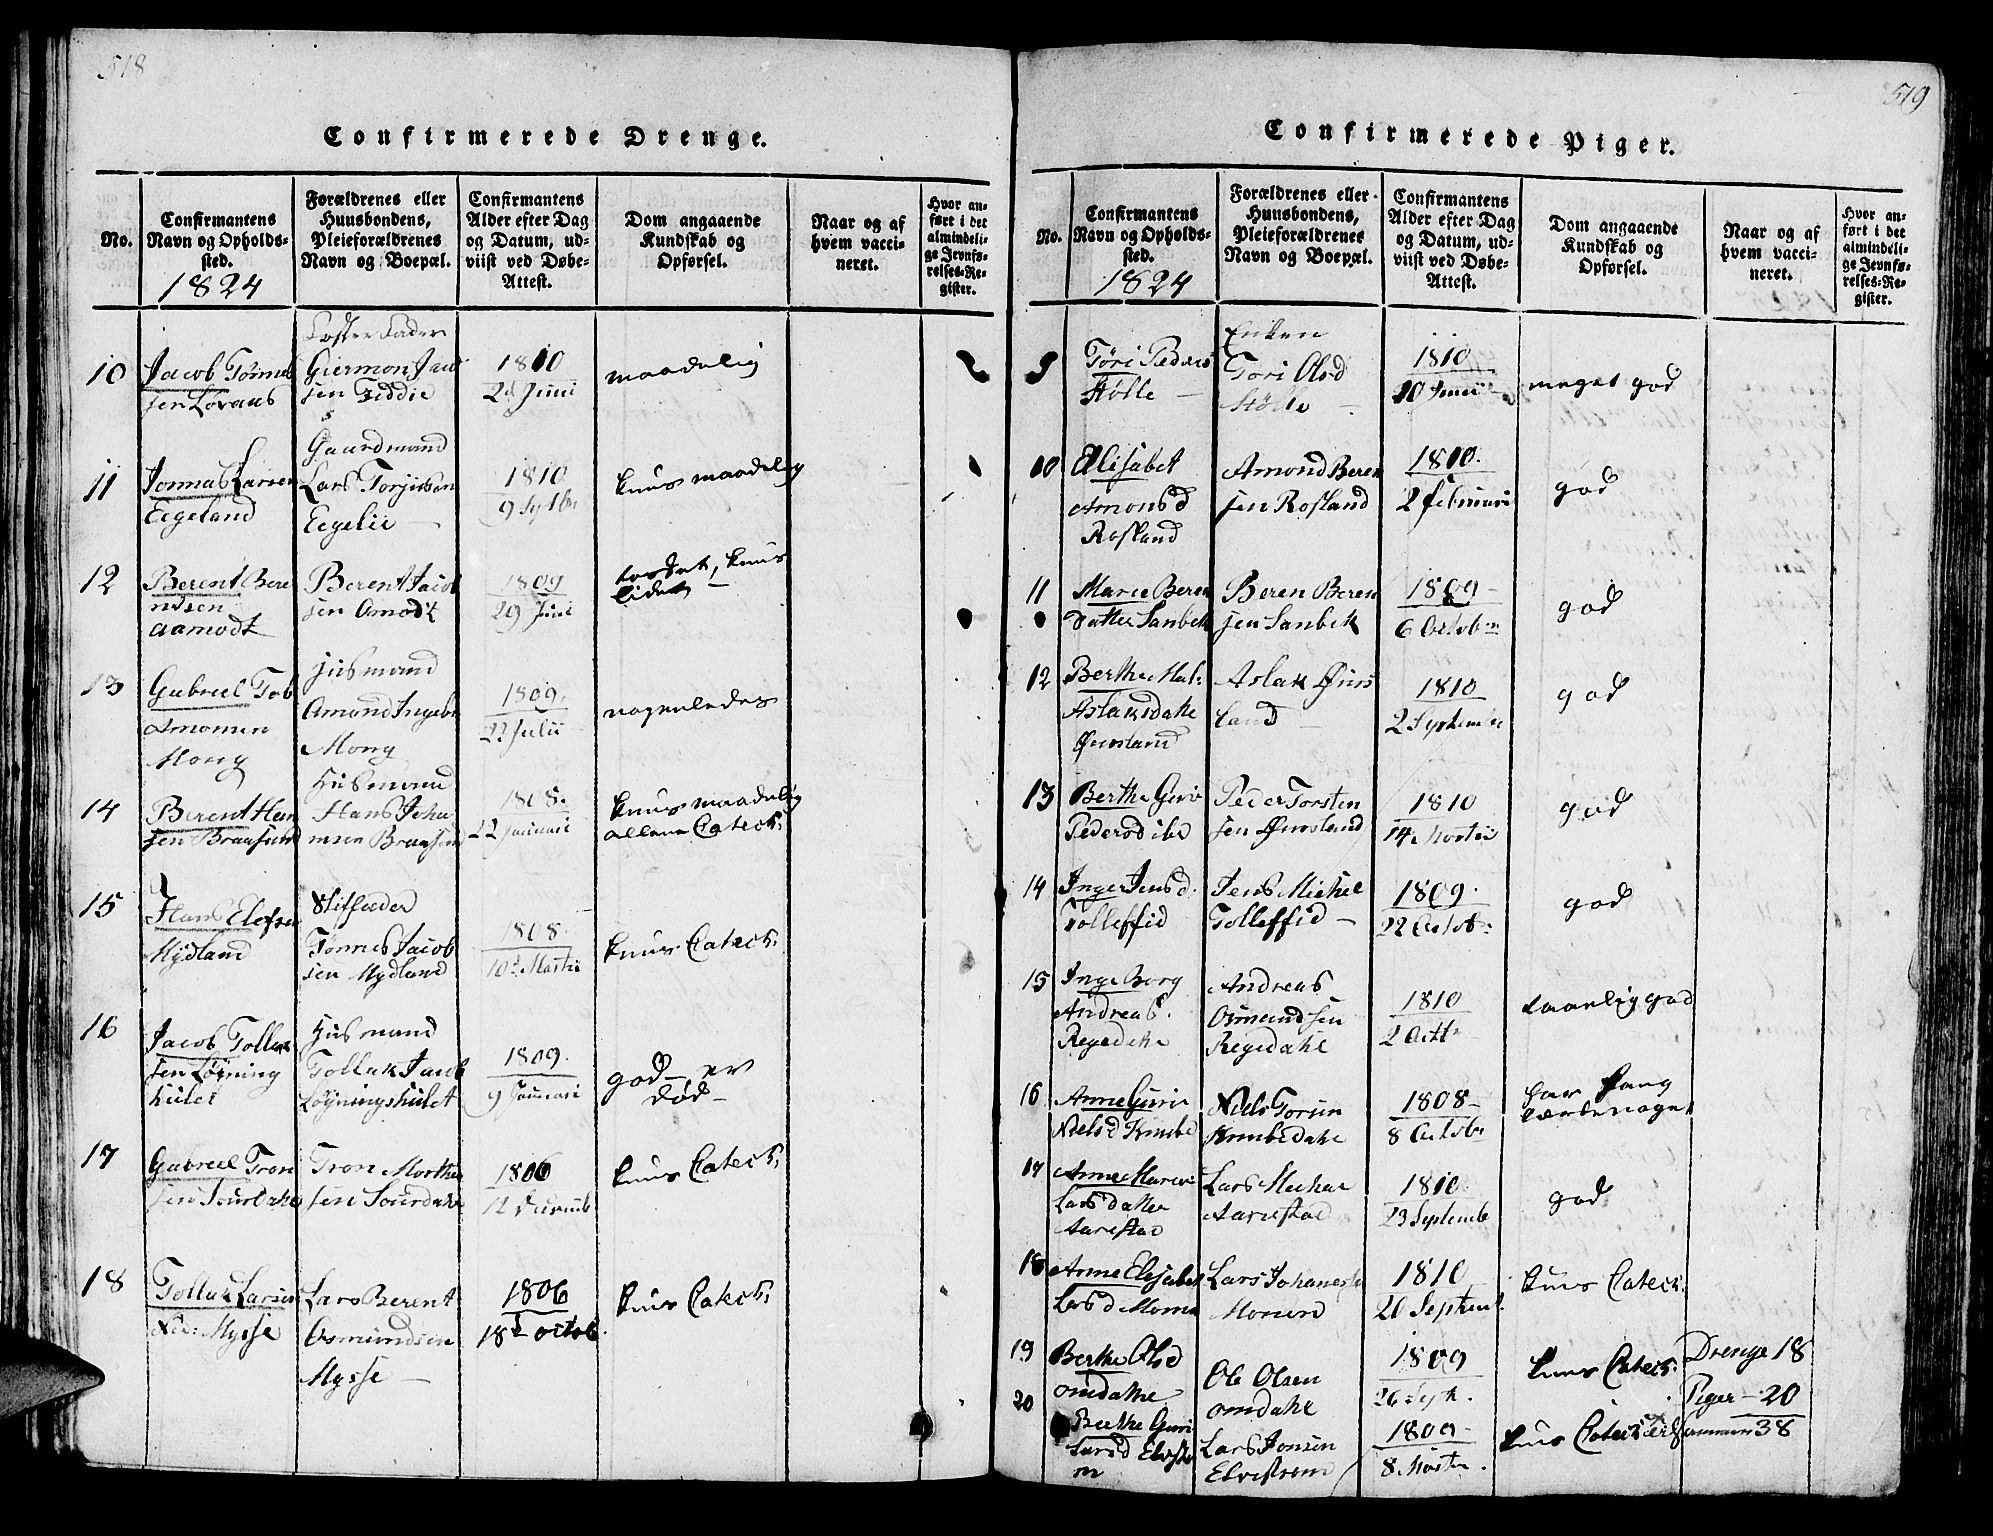 518
Confirmerede Drenge.
No.
Confirmantens
Navn og Opholds-
sted.
1824
Forældrenes eller
Huusbondens,
Pleieforældrenes
Navn og Boepæl.
Confirmantens
Alder efter Dag
og Datum, ud-
viist ved Døbe-
Attest.
Dom angaaende
Kundskab og
Opførsel.
Naar og af
hvem vacci-
neret.
Hvor an-
ført i det
almindeli-
ge Jevnfø-
relses-Re-
gister.
10
Jacob Tønnes
sen Løvaas
Foster Fader
Giermon Jac
sen Feddie
1810
2d Juni
maadelig
11
Jonnas Larsen
Eegeland
Gaardmand
Lars Torjussen
Eegelii
1810
9 Sptbr
kuns maadelig
12
Berent Bere
ntsen
Aamodt
Berent Jacob
sen Amodt
1809
29 Juni
kuns
lidet
13
Gabriel Tob
Amonsen
Mong
Husmand
Amond Ingebr
Mong
1809
22 Julii
nogenledes
14
Berent Han
sen Braasund
Husmand
Hans Joha
nsen Braasund
1808
22 Januari
kuns maadelig
allene Catech:
15
Hans Elefsen
Mydland
Stiffader
Tønnes Jacob
sen Mydland
1808
10d Martii
kuns Catech:
16
Jacob Tollak
sen Løyning
hulet
Husmand
Tollak Jacob
Løyningshulet
1809
9 Januari
god – er
død –
17
Gabriel Tron
sen Sourdahl
Tron Morthen
sen Sourdahl
1806
12 Decemb
kuns Catech:
18
Tollak Larsen
Ned: Mysse
Lars Berent
Osmundsen
Mysse
1806
18d octob.
kuns Catech:
519
Confirmerede Piger.
No.
Confirmantens
Navn og Opholds-
sted.
1824
Forældrenes eller
Huusbondens,
Pleieforældrenes
Navn og Boepæl.
Confirmantens
Alder efter Dag
og Datum, ud-
viist ved Døbe-
Attest.
Dom angaaende
Kundskab og
Opførsel.
Naar og af
hvem vacci-
neret.
Hvor an-
ført i det
almindeli-
ge Jevnfø-
relses-Re-
gister.
9
Töri Peders
Stölle
Enken
Tori Olsd
Stölle
1810
10 Junii
meget god
10
Elisabet
Amonsd
Rosland
Amond Beren
sen Rosland
1810
2 februari
god
11
Marie Beren
datter Sanbek
Beren Beren
sen Sanbek
1809
6 Octobr
god
12
Berthe Mal:
Aslaksdatte
Øursland
Aslak Øurs
land
1810
2 Septembe
god
13
Berthe Guri
Pedersd ibd
Peder Torsten
sen Øursland
1810
14 Martii
god
14
Inger Jensd.
Tolleffid
Jens Michel
Tolleffid
1809
22 Octob:
god
15
Inge Borg
Andreas.
Regedahl
Andreas
Osmundsen
Regedahl
1810
2 Octbr
taalelig god
16
Anne Guri
Nielsd Knube
Niels Torsen
Knubedahl
1808
8 Octobr
har
17
Anne Marie
Lars datter
Aarestad
Lars Michae
Aarestad
1810
23 Septembr
god
18
Anne Elisabet
Larsd Momen
Lars Johanes
Momen
1810
20 Septemb
kuns Catech:
19
Berthe Olsd
omdahl
Ole Olsen
omdahl
1809
26 Sept.
kuns Catech:
Drenge 18
Piger – 20
summa 38
20
Berthe Guri
Larsd Elvestro
m
Lars Jonsen
Elvestrøm
1809
8 Martii
kuns